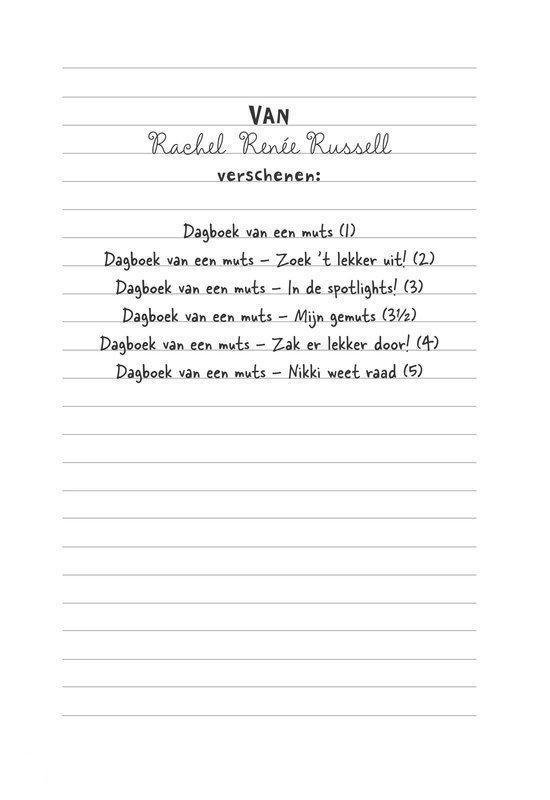 Van
Rachel Renée Russell
verschenen:
Dagboek van een muts (1)
Dagboek van een muts – Zoek 't lekker uit! (2)
Dagboek van een muts – In de spotlights! (3)
Dagboek van een muts – Mijn gemuts (3½)
Dagboek van een muts – Zak er lekker door! (4)
Dagboek van een muts – Nikki weet raad (5)